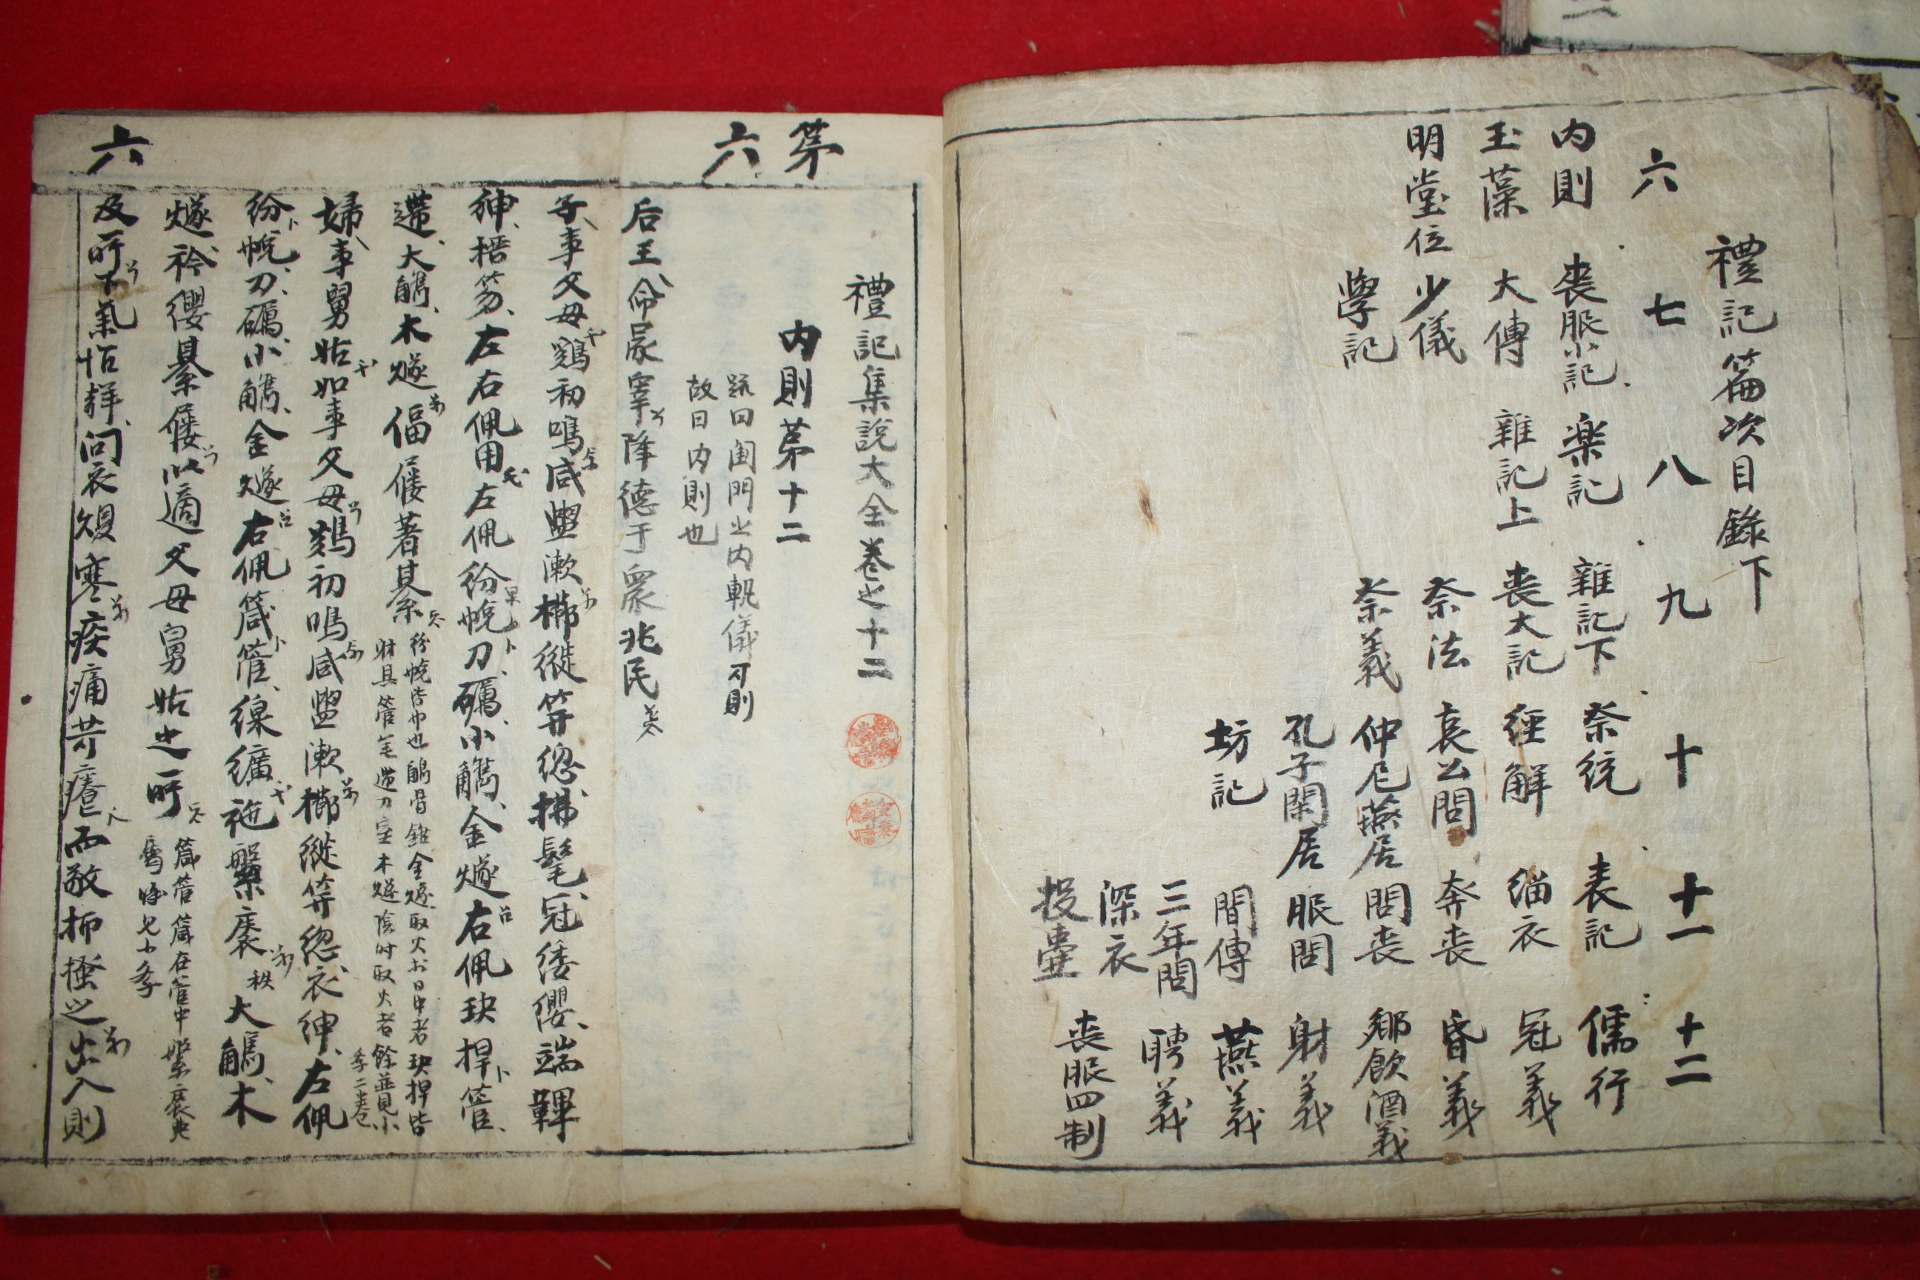 禮記篇次目錄下
六 七 八 九 十 十一 十二
內則 喪服小記 樂記 雜記下 祭統 表記 儒行
玉藻 大傳 雜記上 喪大記 經解 緇衣 冠義
明堂位 少儀 祭法 哀公問 奔喪 昏義
學記 祭義 仲尼燕居 問喪 鄉飲酒義
孔子閒居 服問 射義
坊記 間傳 燕義
三年問 聘義
深衣 喪服四制
投壺
第
六
禮記集說大全卷之十二
內則第十二
疏曰閨門之內軌儀可則
故曰內則也
后王命冢宰降德于眾兆民
子事父母鷄初鳴咸盥漱櫛縰笄總拂髦冠緌纓端韠
紳搢笏左右佩用左佩紛帨刀礪小觿金燧右佩玦捍管
遰大觿木燧偪屨著綦
紛帨皆巾也觿骨錐金燧取火於日中者玦捍皆
射具管筆遰刀室木燧陰時取火者餘並見小
季二卷
婦事舅姑如事父母鷄初鳴咸盥漱櫛縰笄總衣紳左佩
紛帨刀礪小觿金燧右佩箴管線纊施縏袠大觿木
燧衿纓綦屨以適父母舅姑之所
六
及所下氣怡聲問衣燠寒疾痛苛癢而敬抑搔之出入則